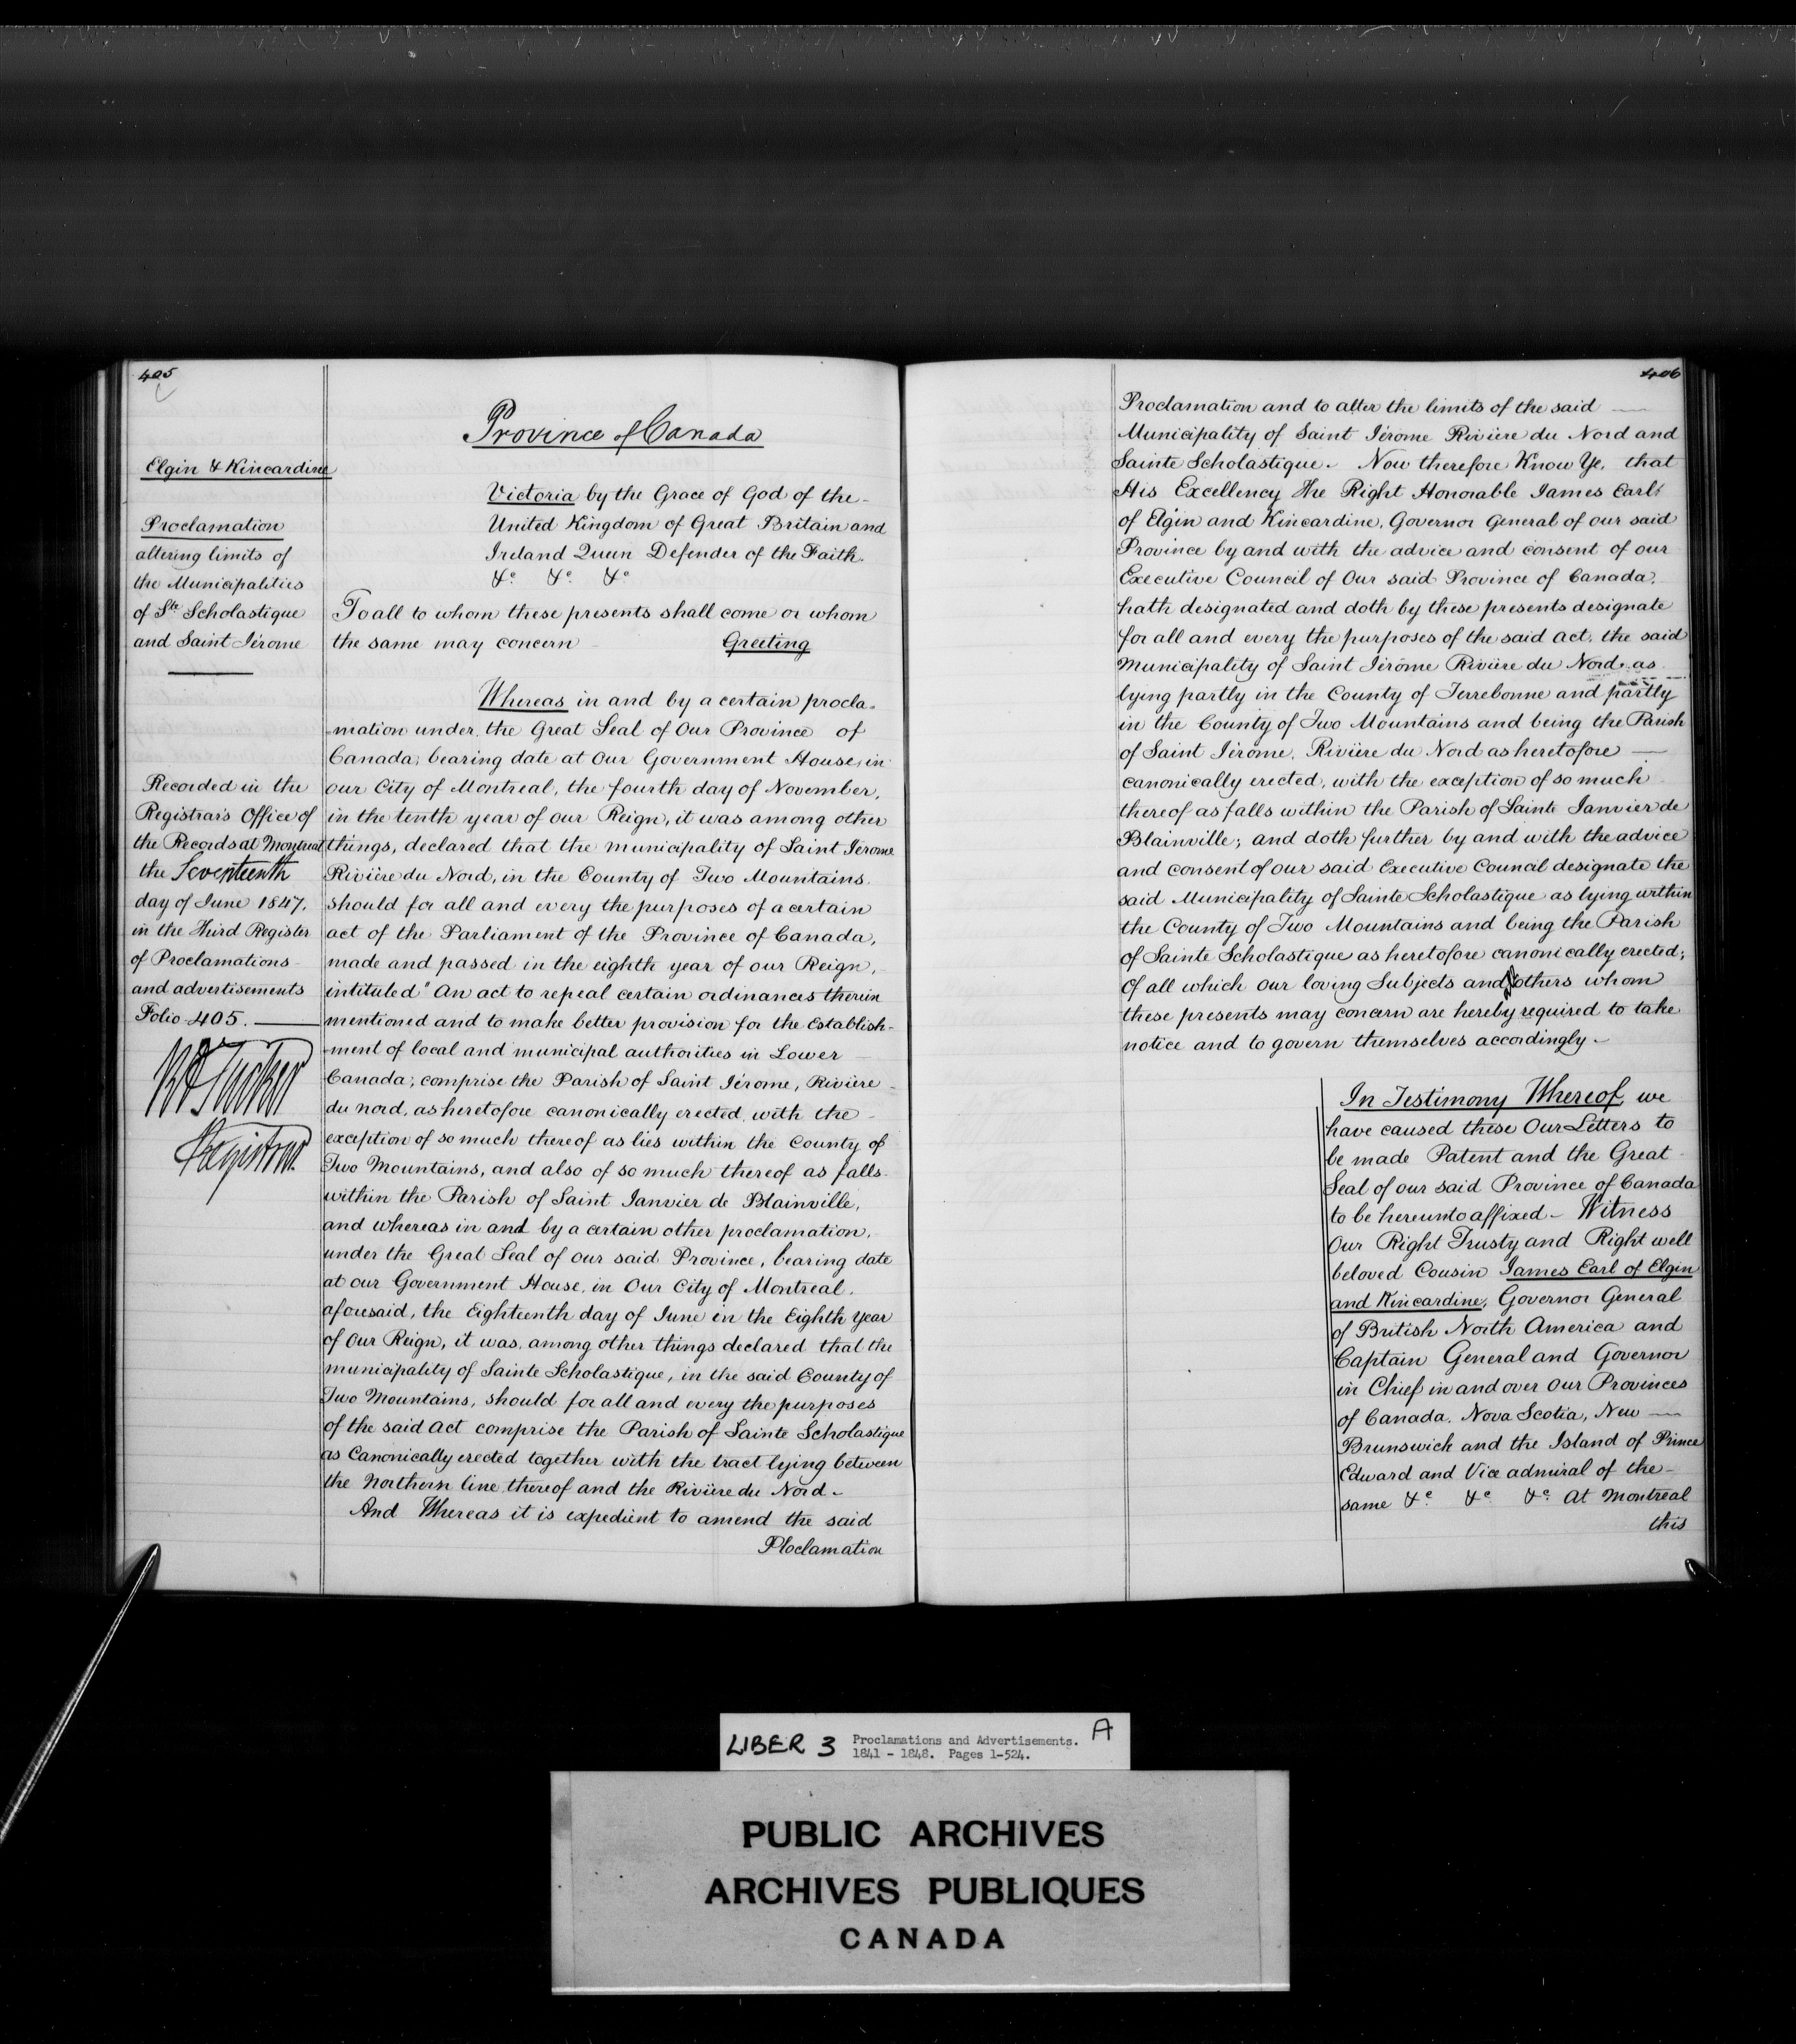 405
Elgin & Kincardine
Proclamation
altering limits of
the Municipalities
of Ste Scholastique
and Saint Jérome
Recorded in the
Registrar's Office of
the Records at Montreal
the Seventeenth
day of June 1847.
in the Third Register
of Proclamations
and advertisements
Folio 405.
Registrar
Province of Canada
Victoria by the Grace of God of the
United Kingdom of Great Britain and
Ireland Queen Defender of the Faith.
&c &c &c
To all to whom these presents shall come or whom
the same may concern Greeting
Whereas in and by a certain procla-
-mation under, the Great Seal of Our Province of
Canada, bearing date at Our Government House, in
our City of Montreal, the fourth day of November,
in the tenth year of our Reign, it was among other
things, declared that the municipality of Saint Jérome
Rivière du Nord, in the County of Two Mountains.
should for all and every the purposes of a certain
act of the Parliament of the Province of Canada,
made and passed in the eighth year of our Reign,
intituled "An act to repeal certain ordinances therein
mentioned and to make better provision for the Establish-
-ment of local and municipal authorities in Lower
Canada, comprise the Parish of Saint Jérome, Rivière
du nord, as heretofore canonically erected, with the
exception of so much thereof as lies within the County of
Two Mountains, and also of so much thereof as falls
within the Parish of Saint Janvier de Blainville,
and whereas in and by a certain other proclamation,
under the Great Seal of our said Province, bearing date
at our Government House, in Our City of Montreal.
aforesaid, the Eighteenth day of June in the Eighth Year
of Our Reign, it was, among other things declared that the
municipality of Sainte Scholastique, in the said County of
Two Mountains, should for all and every the purposes
of the said Act comprise the Parish of Sainte Scholastique
as Canonically erected together with the tract lying between
the Northern line thereof and the Rivière du Nord.
And Whereas it is expedient to amend the said
Ploclamation
406
Proclamation and to alter the limits of the said
Municipality of Saint Jérome Rivière du Nord and
Sainte Scholastique. Now therefore Know Ye, that
His Excellency The Right Honorable James Earl
of Elgin and Kincardine, Governor General of our said
Province by and with the advice and consent of our
Executive Council of Our said Province of Canada,
hath designated and doth by these presents designate
for all and every the purposes of the said Act, the said
Municipality of Saint Jérôme Rivière du Nord, as
lying partly in the County of Terrebonne and partly
in the County of Two Mountains and being the Parish
of Saint Jérome, Rivière du Nord as heretofore
canonically erected, with the exception of so much
thereof as falls within the Parish of Sainte Janvier de
Blainville; and doth further by and with the advice
and consent of our said Executive Council designate the
said Municipality of Sainte Scholastique as lying within
the County of Two Mountains and being the Parish
of Sainte Scholastique as heretofore canonically erected;
Of all which our loving Subjects and others whom
these presents may concern are hereby required to take
notice and to govern themselves accordingly.
In Testimony Whereof, we
have caused these Our Letters to
be made Patent and the Great
Seal of our said Province of Canada
to be hereunto affixed - Witness
Our Right Trusty and Right well
beloved Cousin James Earl of Elgin
and Kincardine, Governor General
of British North America and
Captain General and Governor
in Chief in and over Our Provinces
of Canada, Nova Scotia, New
Brunswick and the Island of Prince
Edward and Vice admiral of the
same &c &c &c At Montreal
this
LIBER 3 Proclamations and Advertisements. A
1841 - 1848. Pages 1-524.
PUBLIC ARCHIVES
ARCHIVES PUBLIQUES
CANADA